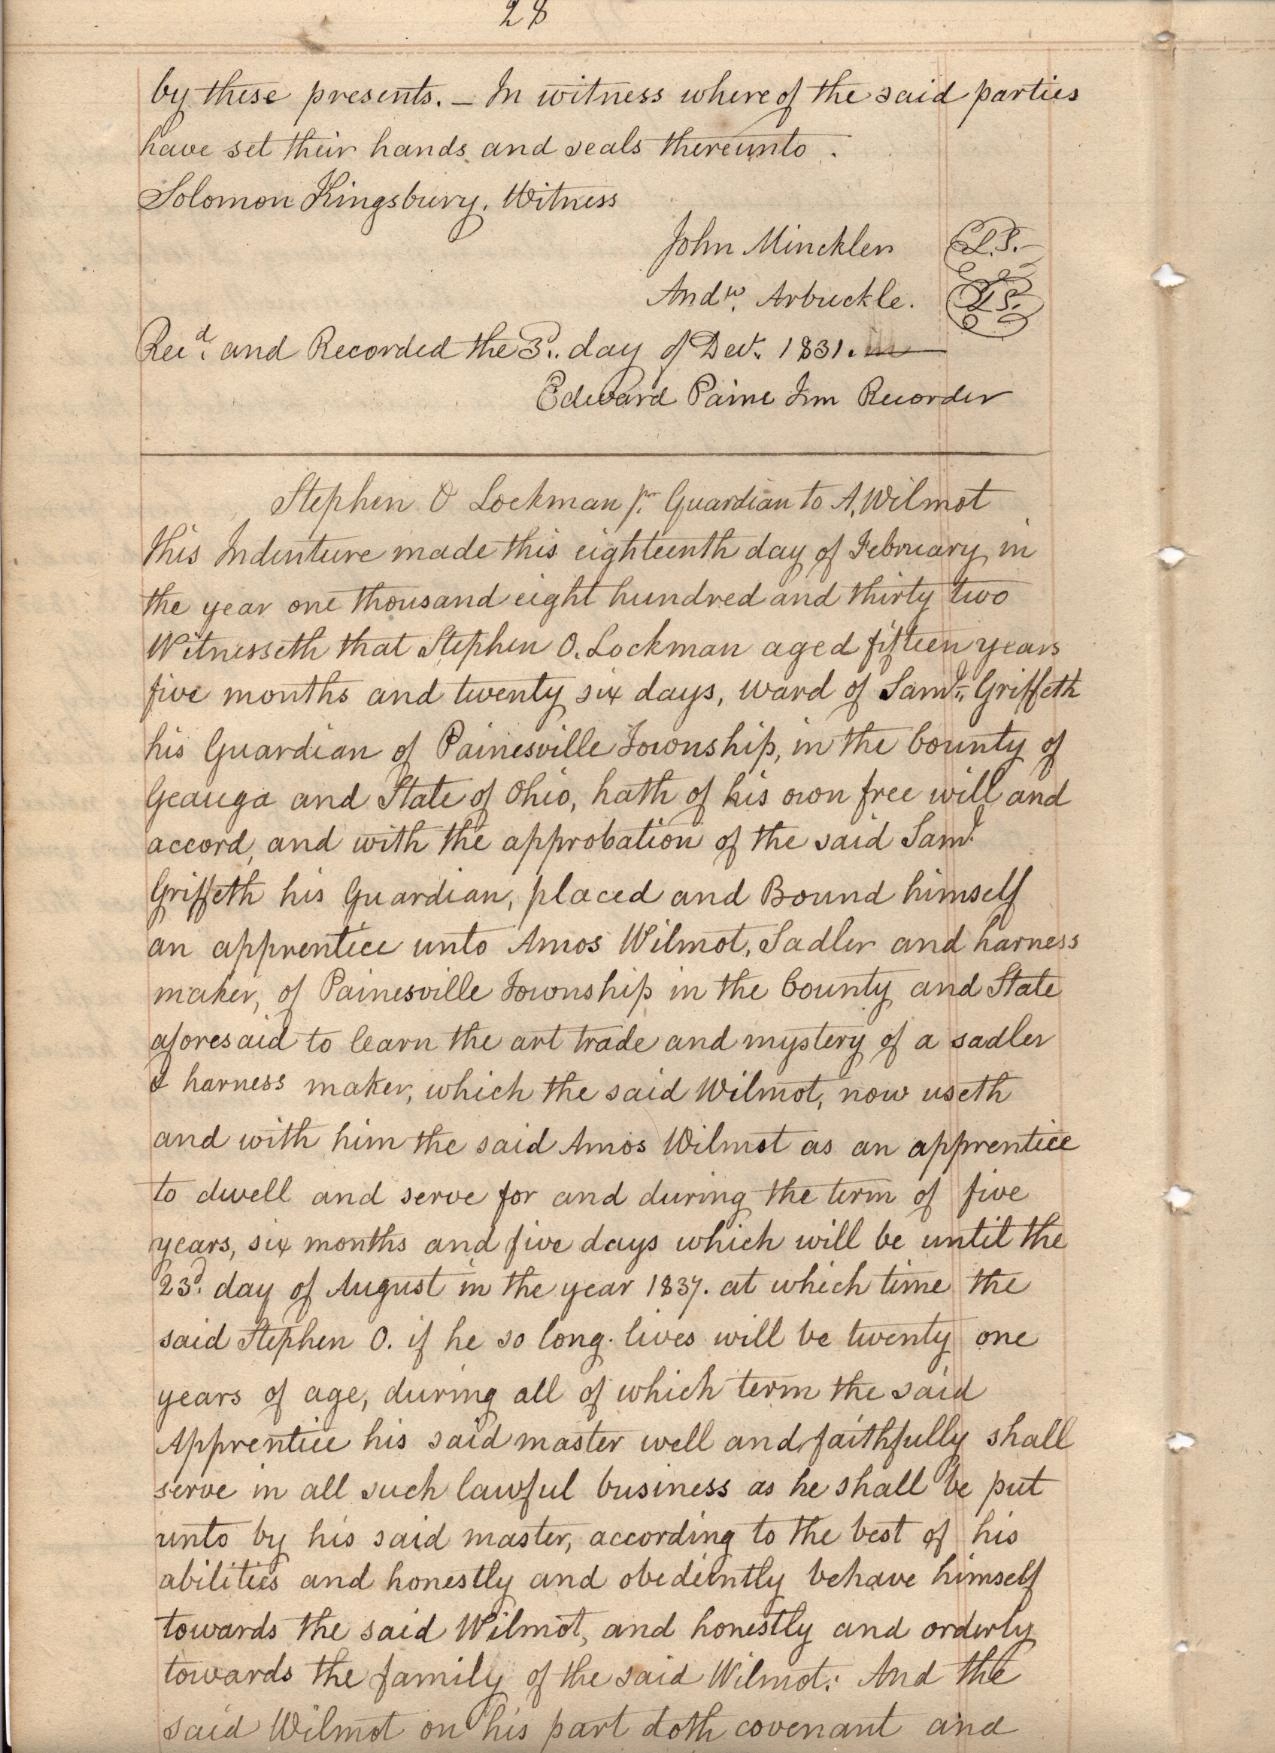 28
by these presents. – In witness whereof the said parties
have set their hands and seals thereunto.
Solomon Kingsbury. Witness
John Minckler L.S.
Andw. Arbuckle. L.S.
Recd. and Recorded the 3d. day of Dect. 1831.
Edward Paine Jun Recorder
Stephen O Lockman pr. Guardian to A. Wilmot
This Indenture made this eighteenth day of February in
the year one thousand eight hundred and thirty two
Witnesseth that Stephen O. Lockman aged fifteen years
five months and twenty six days, ward of Saml. Griffeth
his Guardian of Painesville Township, in the County of
Geauga and State of Ohio, hath of his own free will and
accord, and with the approbation of the said Saml.
Griffeth his Guardian, placed and Bound himself
an apprentice unto Amos Wilmot, Sadler and harness
maker, of Painesville Township in the County and State
aforesaid to learn the art trade and mystery of a sadler
& harness maker, which the said Wilmot, now useth
and with him the said Amos Wilmot as an apprentice
to dwell and serve for and during the term of five
years, six months and five days which will be until the
23d. day of August in the year 1837. at which time the
said Stephen O. if he so long lives will be twenty one
years of age, during all of which term the said
Apprentice his said master well and faithfully shall
serve in all such lawful business as he shall be put
unto by his said master, according to the best of his
abilities and honestly and obediently behave himself
towards the said Wilmot, and honestly and orderly
towards the family of the said Wilmot: And the
said Wilmot on his part doth covenant and